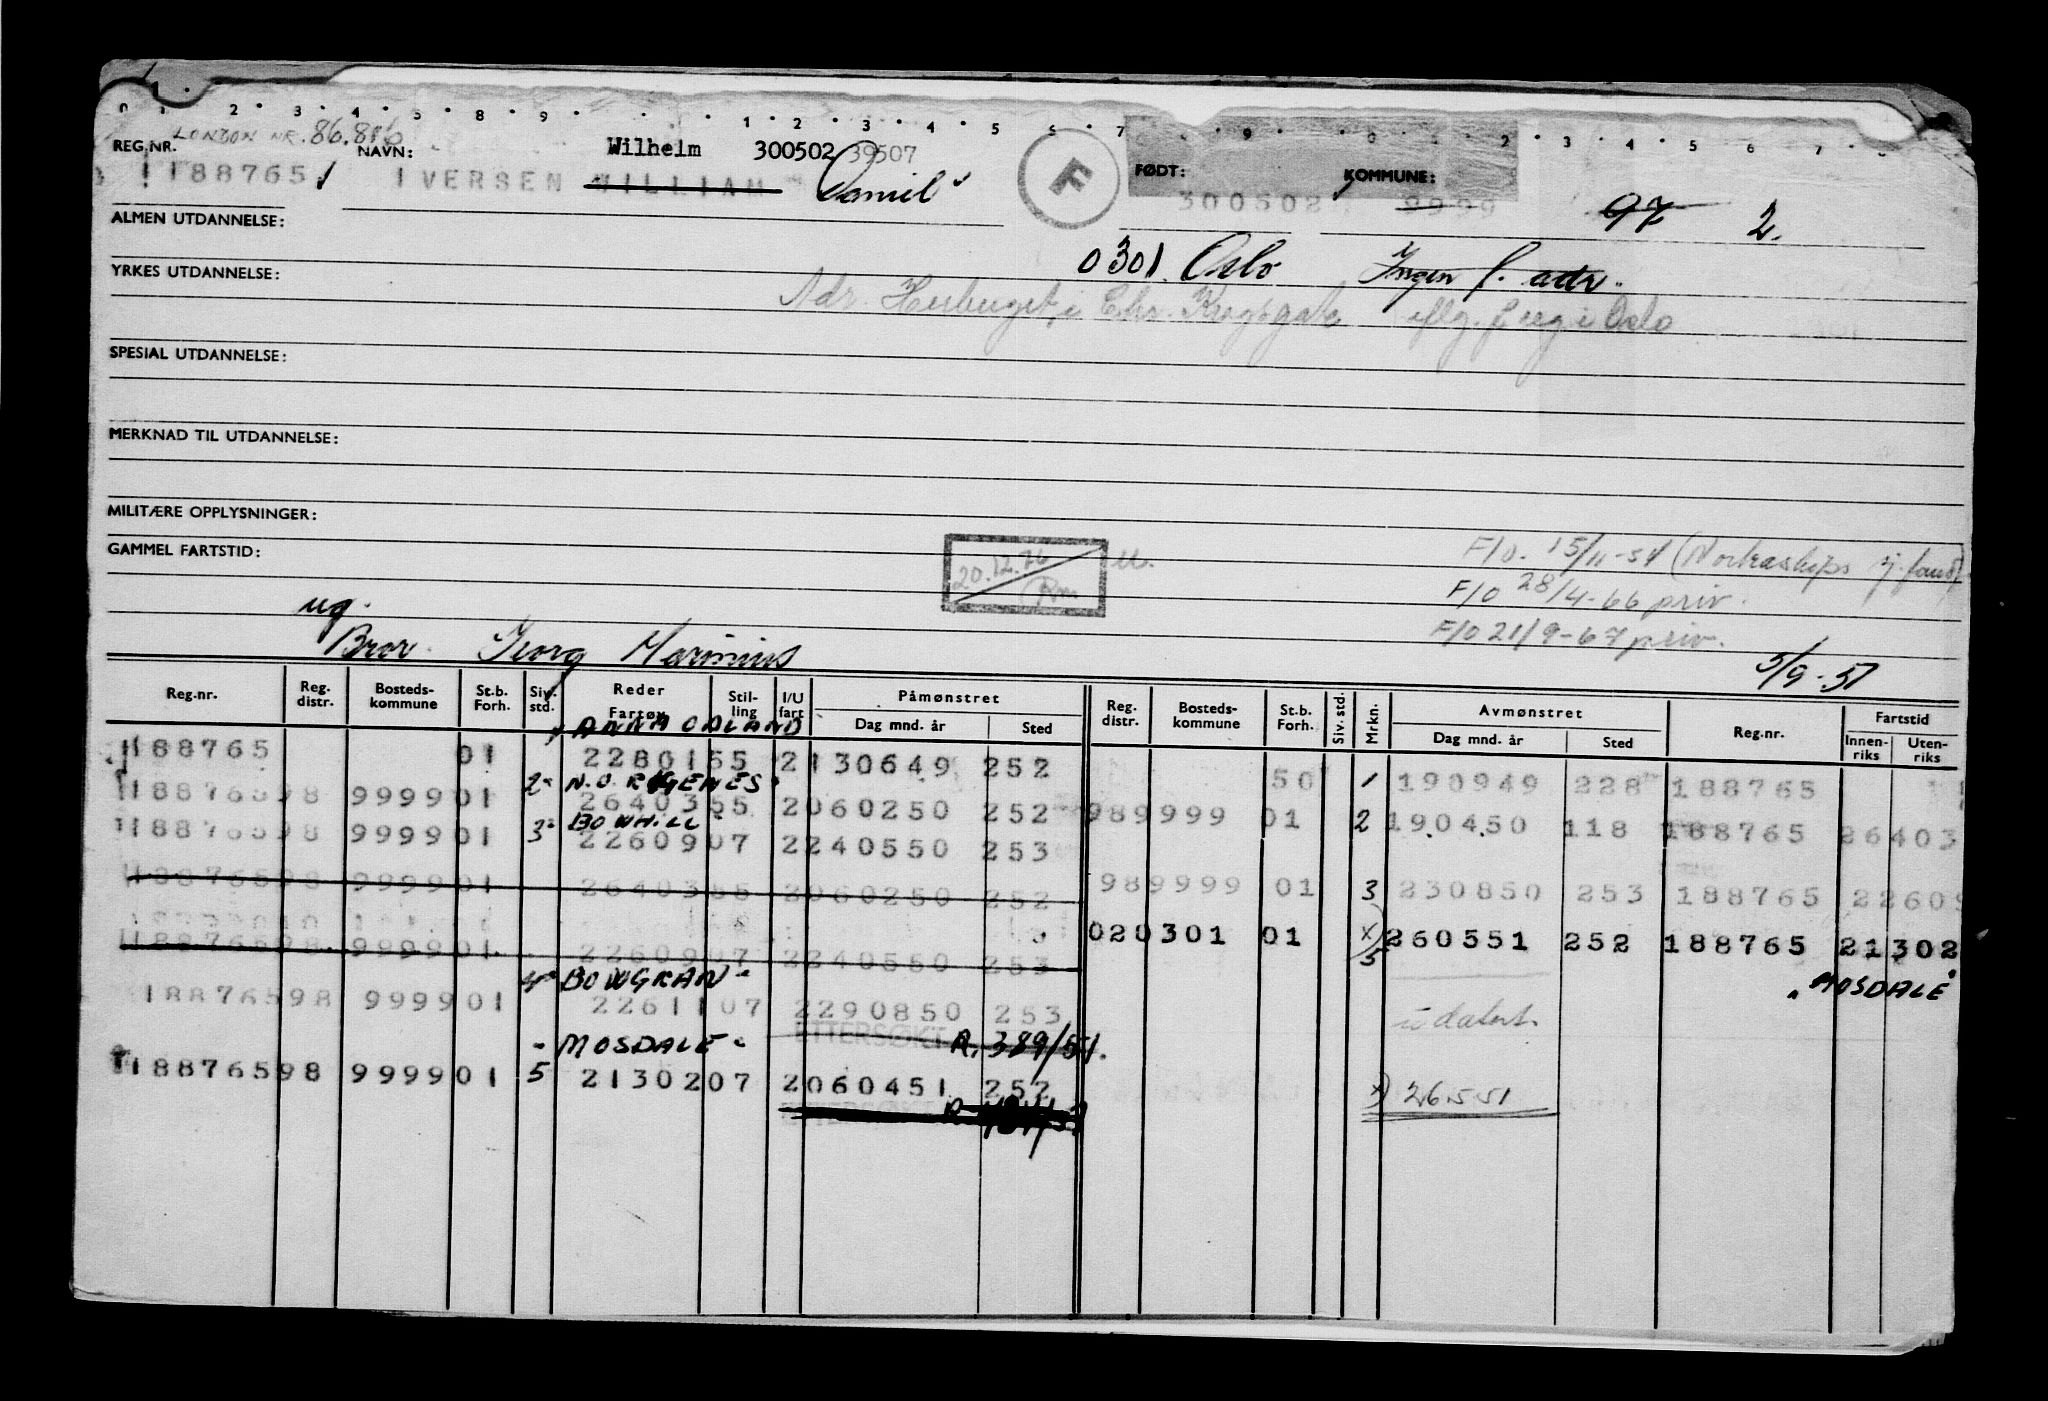 0 1 2 3 4 5 8 9 1 2 3 4 5 6 7 9 0 2 3 4 5 6 7
LONDON NR. 86.816
REG.NR. NAVN: Wilhelm 300502 39507 F FØDT: KOMMUNE:
188765 IVERSEN WILLIAM Daniel 300502 9999 97 2.
ALMEN UTDANNELSE:
0301 Oslo Ingen f. adr.
YRKES UTDANNELSE:
Adr. Herberget i Chr. Kroghsgate iflg. f. reg i Oslo
SPESIAL UTDANNELSE:
MERKNAD TIL UTDANNELSE:
MILITÆRE OPPLYSNINGER:
GAMMEL FARTSTID:
20.12.76 F/O. 15/11-54 (Nortraships sj. fond)
F/O 28/4-66 priv.
F/O 21/9-67 priv.
ug.
Bror. Georg Marinius
5/9-51
Reg.nr. Reg. distr. Bosteds-kommune St.b. Forh. Siv. std. Reder Fartøy Stil-ling I/U fart Påmønstret Dag mnd. år Sted Reg. distr. Bosteds-kommune St.b. Forh. Siv. std. Mrkn. Avmønstret Dag mnd. år Sted Reg.nr. Fartstid Innen-riks Uten-riks
" ANNA ODLAND
188765 01 22801 55 2 130649 252 50 1 190949 228 188765
2" N.O. ROGENES"
188765 98 9999 01 26403 55 2 060250 252 98 9999 01 2 190450 118 188765 26403
3" BOWHILL"
188765 98 9999 01 22609 07 2 240550 253
188765 98 9999 01 26403 55 2 060250 252 98 9999 01 3 230850 253 188765 22609
02 0301 01 x) 5 260551 252 188765 21302
188765 98 9999 01 22609 07 2 240550 253
4" BOWGRAN" "MOSDALE"
188765 98 9999 01 22611 07 2 290850 253 udatert.
ETTERSØKT R. 389/51.
"MOSDALE"
188765 98 9999 01 5 21302 07 2 060451 252
x) 26.5.51
ETTERSØKT